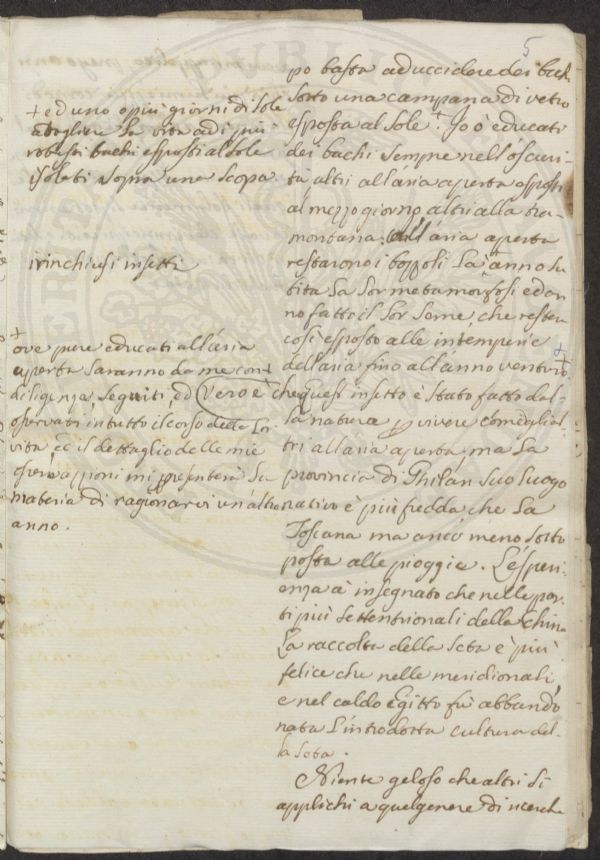 5
po basta ad uccidere dei bachi
sotto una campana di vetro
esposta al sole + Io ò educati
dei bachi sempre nell'oscuri-
tà altri all'aria aperta esposti
al mezzo giorno altri alla tra-
montana. All'aria aperta
restarono i bozzoli là ànno su
bita la lor metamorfosi ed àn
no fatto il lor seme, che resterà
così esposto alle intemperie
dell'aria fino all'anno venturo +
Vero è che quest' insetto è stato fatto dal-
la natura p vivere come gli al-
tri all'aria aperta, ma la
provincia di Ghilan suo luogo
nativo è più fredda che la
Toscana ma anco meno sotto
posta alle pioggie. L'esperi-
enza à insegnato che nelle par-
ti più settentrionali della China
la raccolta della seta è più
felice che nelle meridionali,
e nel caldo Egitto fù abbando
nata l'introdotta cultura del-
la seta.
Niente geloso che altri si
applichi a quel genere di ricerche
+ ed uno o più giorni di sole
a togliere la vita ad i più
robusti bachi esposti al sole
isolati sopra una scopa.
i rinchiusi insetti
+
ove pure educati all'aria
aperta saranno da me con
diligenza seguiti, ed
osservati in tutto il corso della lor
vita, e il dettaglio delle mie
mi presenterà la
materia di ragionarvi un altro
anno.